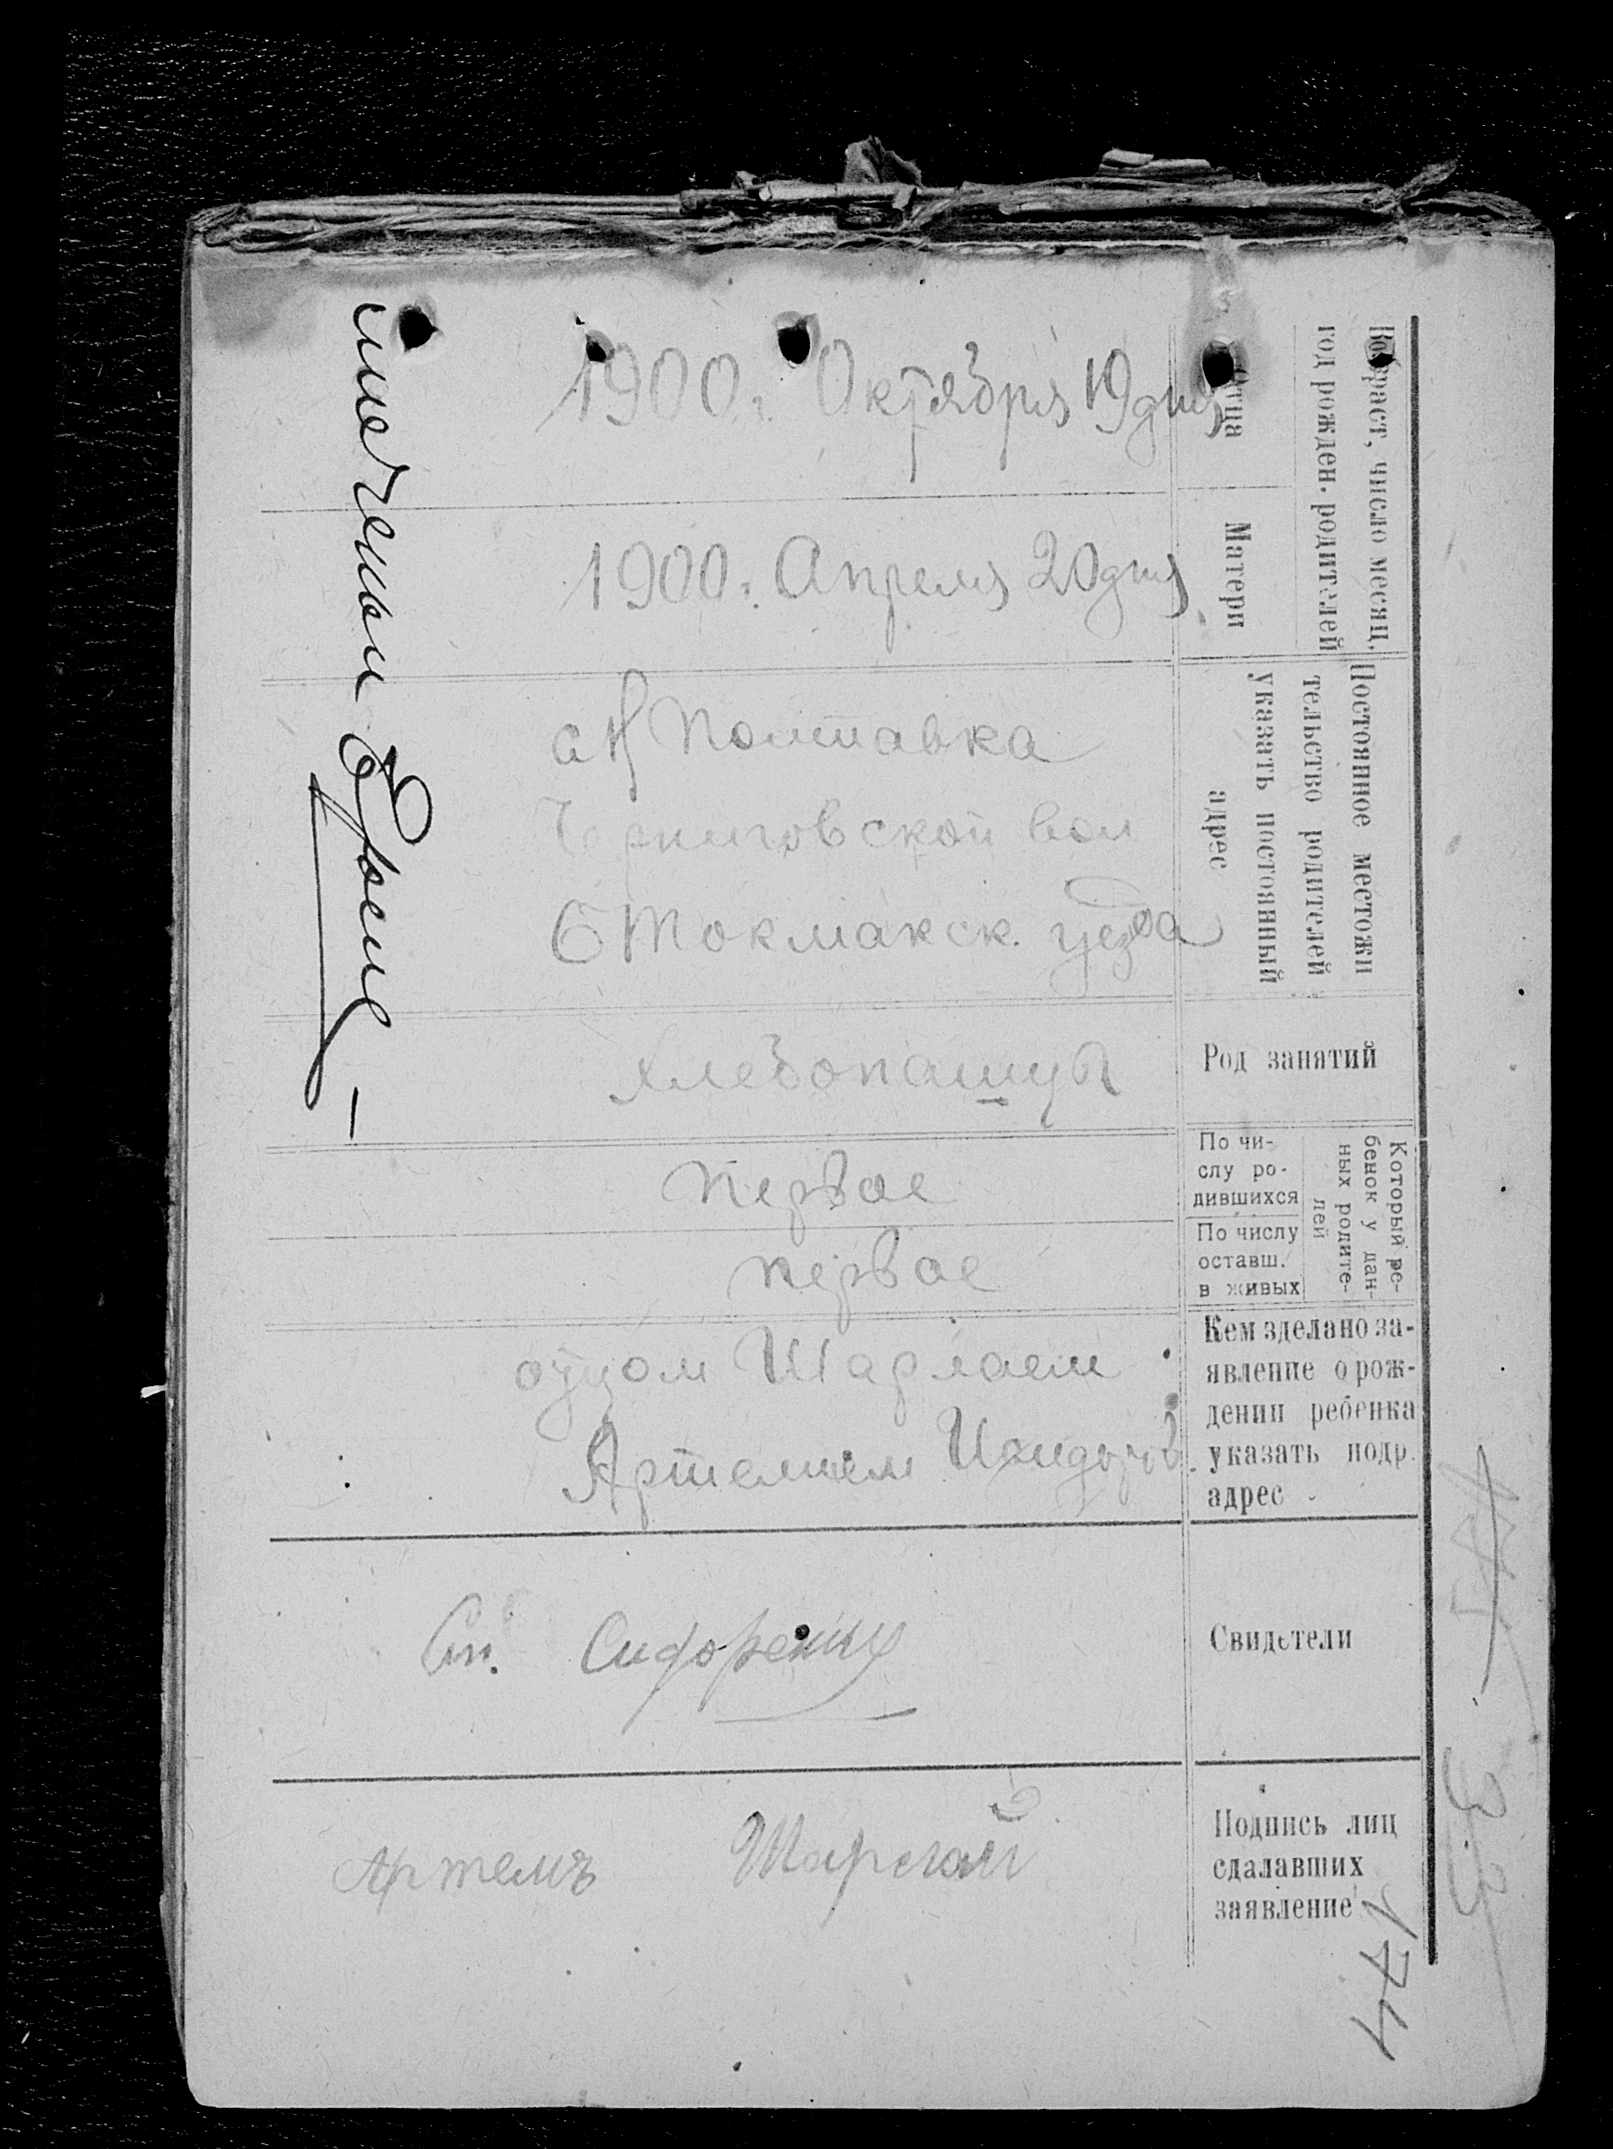 Возраст, число месяц,
год рожден. родителей
Отца
1900 г. Октября 19 дня
Матери
1900 г. Апреля 20 дня
Постоянное местожи
тельство родителей
указать постоянный
адрес
с Н Полтавка
Черниговской вол
Б Токмакск. уезда
Род занятий
хлебопашцы
Который ре-
бенок у дан-
ных родите-
лей
По чи-
слу ро-
дившихся
первое
По числу
оставш.
в живых
первое
Кем зделано за-
явление о рож-
дении ребенка
указать подр.
адрес
отцом Шарлаем
Артемием Исидоров.
Свидетели
Сп. Сидоренко
Подпись лиц
сдалавших
заявление
Артемъ Шарлай
33
174